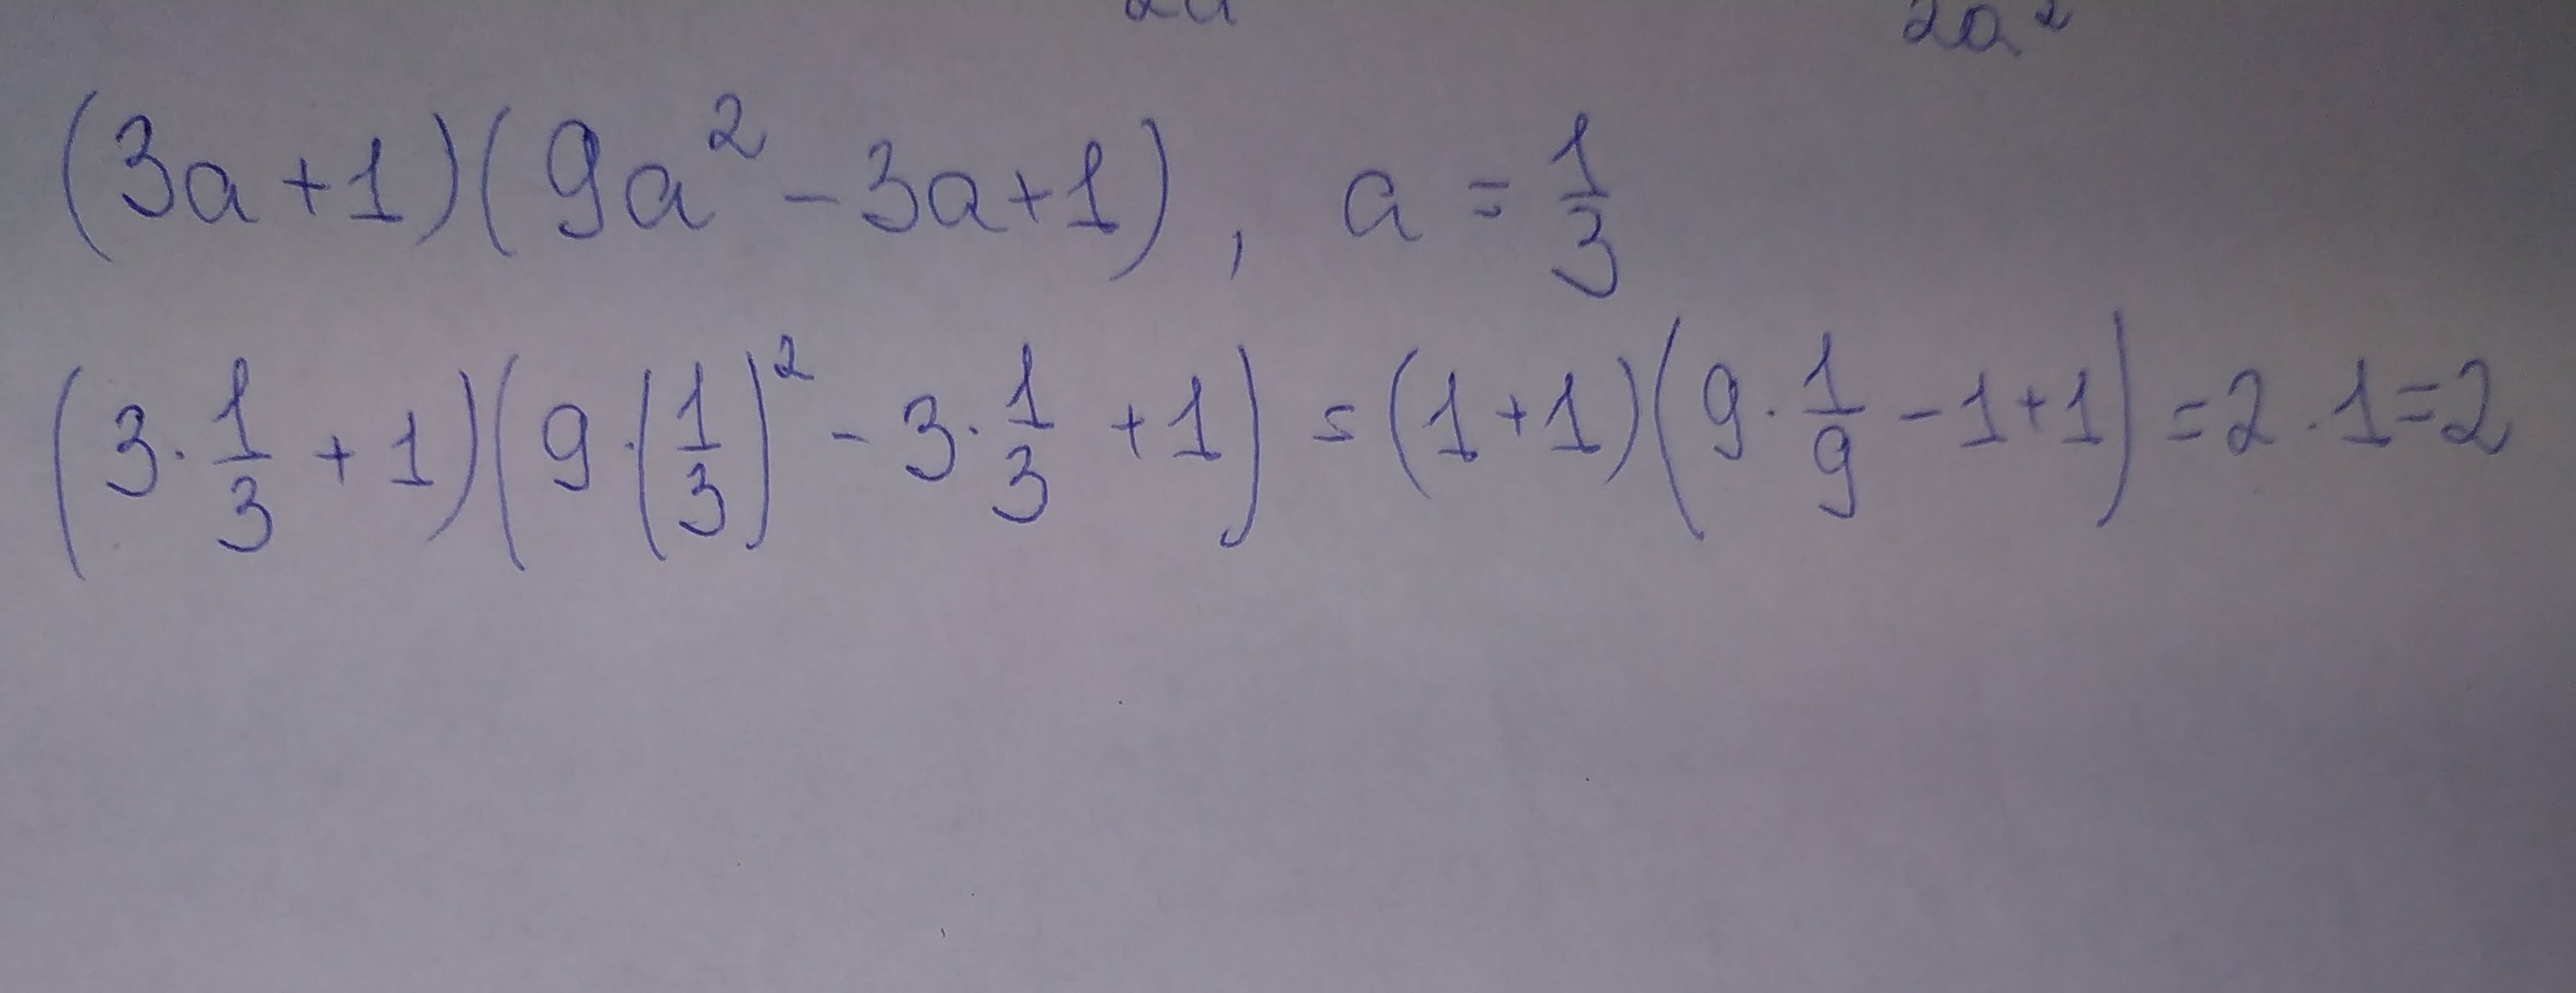 2a²
(3a+1)(9a²-3a+1), a = 1/3
(3·1/3+1)(9·(1/3)²-3·1/3+1) = (1+1)(9·1/9-1+1) = 2·1=2